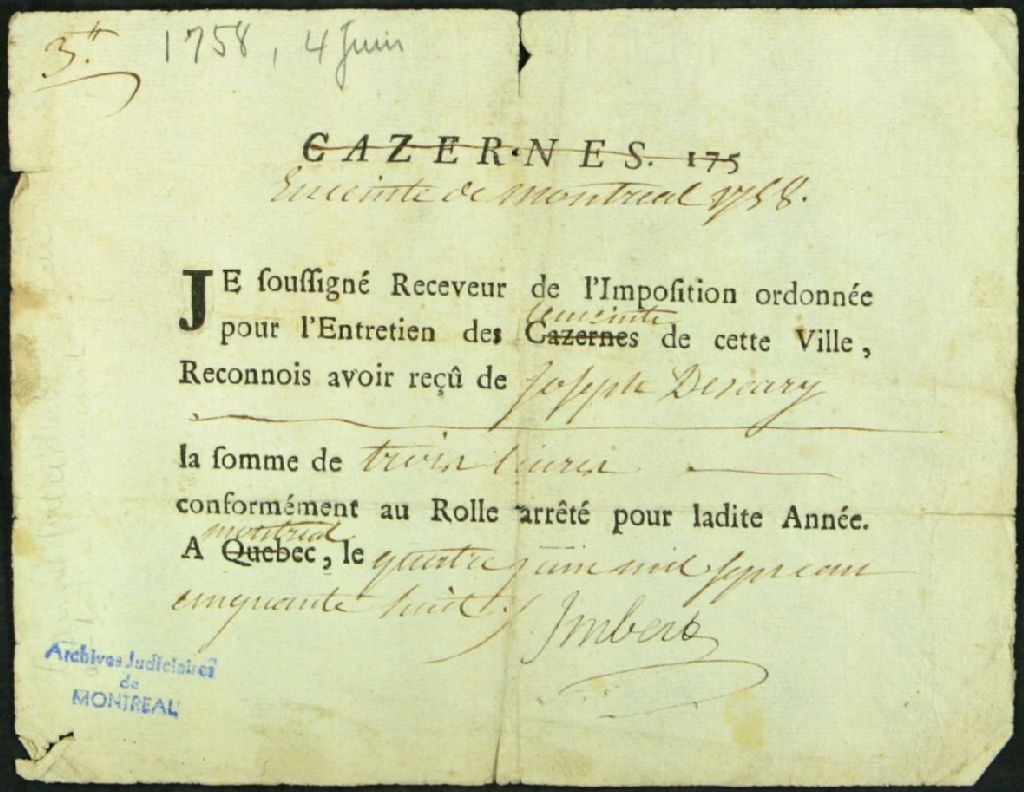 3.tt
1758, 4 Juin
CAZERNES. 175
Enceinte de Montreal 1758.
JE soussigné Receveur de l'Imposition ordonnée
l'enceinte
pour l'Entretien des Cazernes de cette Ville,
Reconnois avoir reçû de Joseph Descary
la somme de trois livres
conformément au Rolle arrêté pour ladite Année.
montreal
A Quebec, le quatre juin mil sept cent
cinquante huit
Imbert
Archives Judiciaires
de
MONTREAL